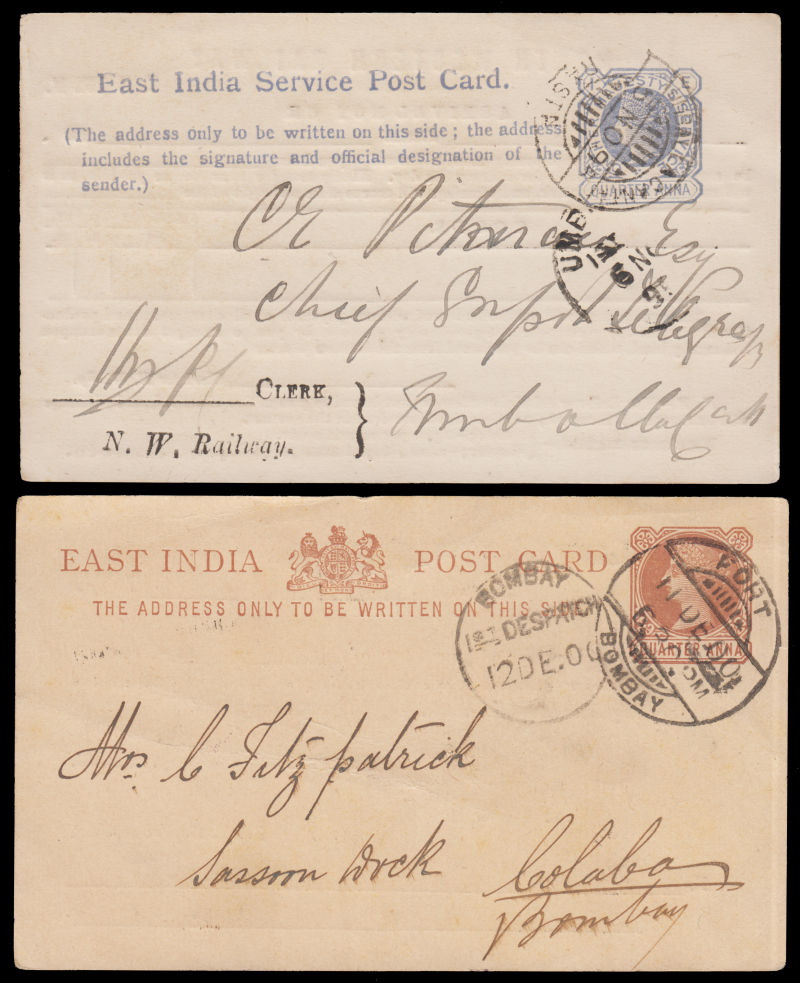 East India Service Post Card.
(The address only to be written on this side; the address
includes the signature and official designation of the
sender.)
QUARTER ANNA
UMB
Esq
Chief
Telegraph
CLERK,
N. W. Railway.
}
EAST INDIA POST CARD
THE ADDRESS ONLY TO BE WRITTEN ON THIS SIDE
QUARTER ANNA
BOMBAY
1ST DESPATCH
12 DE. 00
FORT
11 DE
BOMBAY
Mrs C Fitzpatrick
Sassoon Dock
Colaba
Bombay